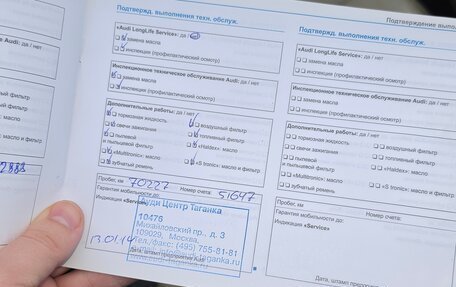 Подтвержд. выполнения техн. обслуж.
«Audi LongLife Service»: да / нет
замена масла
инспекция (профилактический осмотр)
Инспекционное техническое обслуживание Audi: да / нет
замена масла
инспекция (профилактический осмотр)
Дополнительные работы: да / нет
тормозная жидкость
воздушный фильтр
свечи зажигания
топливный фильтр
пылевой
и пыльцевой фильтр
«Haldex»: масло
«Multitronic»: масло
«S tronic»: масло и фильтр
зубчатый ремень
Пробег, км 70227 Номер счета: 51647
Гарантия мобильности до:
Индикация «Service»
Ауди Центр Таганка
10476
Михайловский пр., д. 3
109029, Москва,
тел./факс: (495) 755-81-81
13.01.14
Дата, штамп предприятия Audi
Подтверждение выпол
Подтвержд. выполнения техн. обслуж.
«Audi LongLife Service»: да / нет
замена масла
инспекция (профилактический осмотр)
Инспекционное техническое обслуживание Audi: да / нет
замена масла
инспекция (профилактический осмотр)
Дополнительные работы: да / нет
тормозная жидкость
воздушный фильтр
свечи зажигания
топливный фильтр
пылевой
и пыльцевой фильтр
«Haldex»: масло
«Multitronic»: масло
«S tronic»: масло и фильтр
зубчатый ремень
Пробег, км
Номер счета:
Гарантия мобильности до:
Индикация «Service»
Дата, штамп предпри